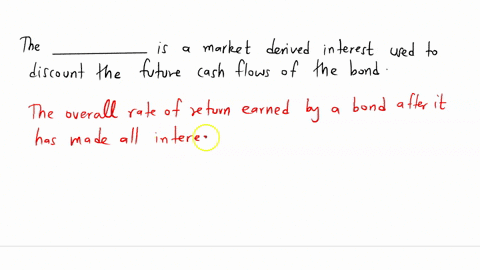 The ____________ is a market derived interest used to
discount the future cash flows of the bond.
The overall rate of return earned by a bond after it
has made all intere